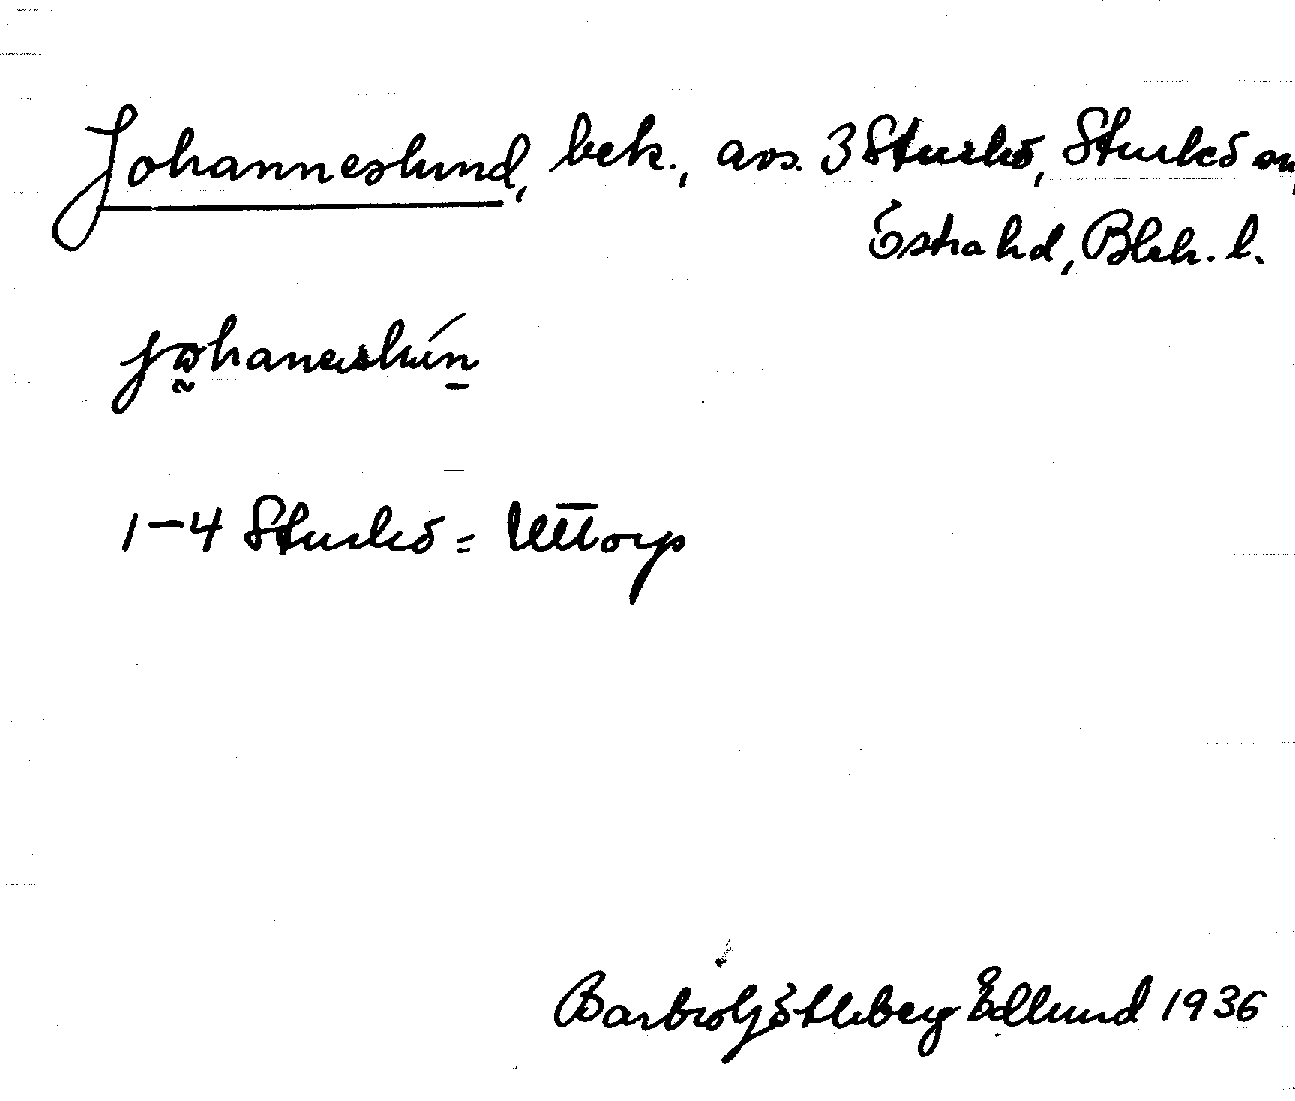 Johanneslund, bek., avs. 3 Sturkö, Sturkö sn,
Östra hd, Blek. l.
1–4 Sturkö = Uttorp
Barbro Götleberg Edlund 1936